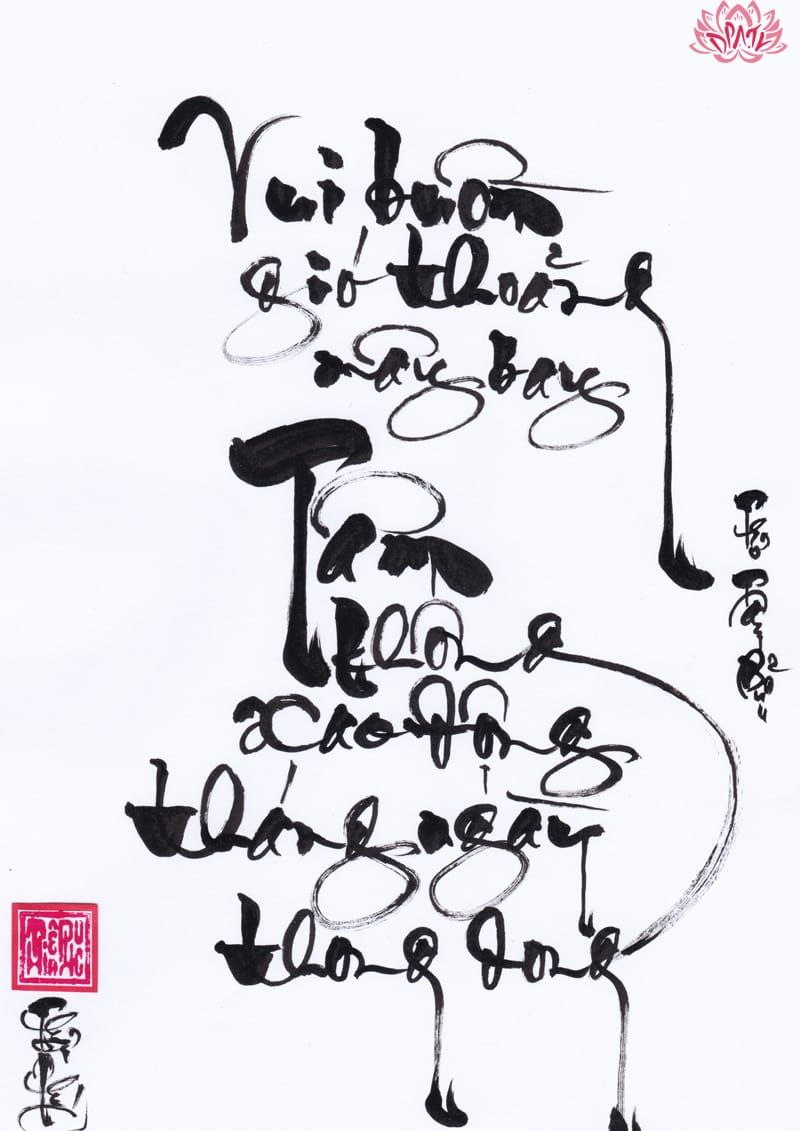 DPATK
Vui buồn
gió thoảng
mây bay
Tâm
không
xao động
tháng ngày
thong dong